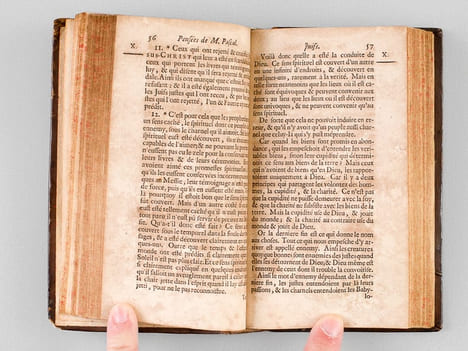 56 Pensées de M. Pascal.
X.
11. * Ceux qui ont rejetté &
SUS-CHRIST qui leur a esté en
ceux qui portent les livres qui
luy, & qui disent qu'il sera rejetté
dale. Ainsi ils ont marqué que
refusant; & il a esté également
les Juifs justes qui l'ont receu, & par les
stes qui l'ont rejetté, l'un & l'autre
prédit.
12. * C'est pour cela que les propheties
un sens caché, le spirituel dont ce peuple
ennemy, sous le charnel qu'il aimoit. Si
spirituel eust esté découvert,
capables de l'aimer; & ne pouvant
n'eussent pas eu de zele pour la
leurs livres & de leurs ceremonies.
avoient aimé ces promesses
qu'ils les eussent conservées
qu'au Messie, leur témoignage n'eust
de force, puis qu'ils en eussent esté
Là pourquoy il estoit bon que le sens
fust couvert. Mais d'un autre costé
eust esté tellement caché qu'il n'eust
tout paru il n'eust pû servir de preuve
sie. Qu'a-il donc esté fait? Ce sens
couvert sous le temporel dans la foule
sages, & a esté découvert clairement
ques-uns. Outre que le temps & l'estat
monde ont esté prédits si clairement
Soleil n'est pas plus clair. Et ce sens
si clairement expliqué en quelques
qu'il falloit un aveuglement pareil à
la chair jette dans l'esprit quand il luy
jetti, pour ne le pas reconnoistre.
Juifs. 57
X.
Voilà donc quelle a esté la conduite de
Dieu. Ce sens spirituel est couvert d'un autre
en une infinité d'endroits, & découvert en
quelques-uns, rarement à la verité. Mais en
telle sorte neanmoins que les lieux où il est
caché sont équivoques & peuvent convenir aux
deux; au lieu que les lieux où il est découvert
sont univoques, & ne peuvent convenir qu'au
sens spirituel.
De sorte que cela ne pouvoit induire en erreur,
& qu'il n'y avoit qu'un peuple aussi charnel
que celuy-là qui s'y pust méprendre.
Car quand les biens sont promis en abondance,
qui les empeschoit d'entendre les veritables
biens, sinon leur cupidité qui déterminoit
ce sens aux biens de la terre? Mais ceux
qui n'avoient de biens qu'en Dieu, les rapportoient
uniquement à Dieu. Car il y a deux
principes qui partagent les volontez des hommes,
la cupidité, & la charité. Ce n'est pas
que la cupidité ne puisse demeurer avec la foy,
& que la charité ne subsiste avec les biens de la
terre. Mais la cupidité use de Dieu, & jouit
du monde; & la charité au contraire use du
monde & jouit de Dieu.
Or la derniere fin est ce qui donne le nom
aux choses. Tout ce qui nous empesche d'y arriver
est appellé ennemy. Ainsi les creatures
quoy que bonnes sont ennemies des justes quand
elles les détournent de Dieu; & Dieu mesme est
l'ennemy de ceux dont il trouble la convoitise.
Ainsi le mot d'ennemy dépendant de la derniere
fin, les justes entendoient par là leurs
passions, & les charnels entendoient les Baby-
lo-